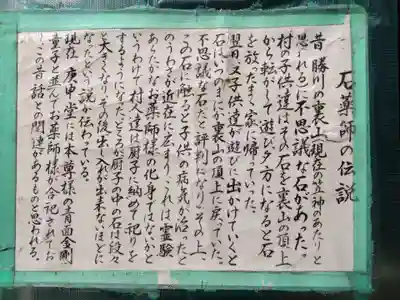 石薬師の伝説
昔勝川の裏山(現在の笠神のあたりと
思われる)に不思議な石があった。
村の子供達はその石を裏山の頂上
から転がして遊び夕方になると石
を放ったまゝ家に帰っていた。
翌日又子供達が遊びに出かけていくと
石はいつのまにか裏山の頂上に戻っていた。
不思議な石だと評判になり、その上、
この石に触ると子供の病気が治ったと
のうわさが近在に広まり、これは霊験
あらたかなお薬師様の化身ではないかと
いうわけで、村人達は厨子に納めて祀りを
するようになった。ところが厨子の中の石は段々
と大きくなり、その後出し入れが出来ないほどに
なったという説が伝わっている。
現在庚申堂には本尊様の青面金剛
童子と並んでお薬師様が合祀されてお
りこの昔話との関連があるものと思われる。